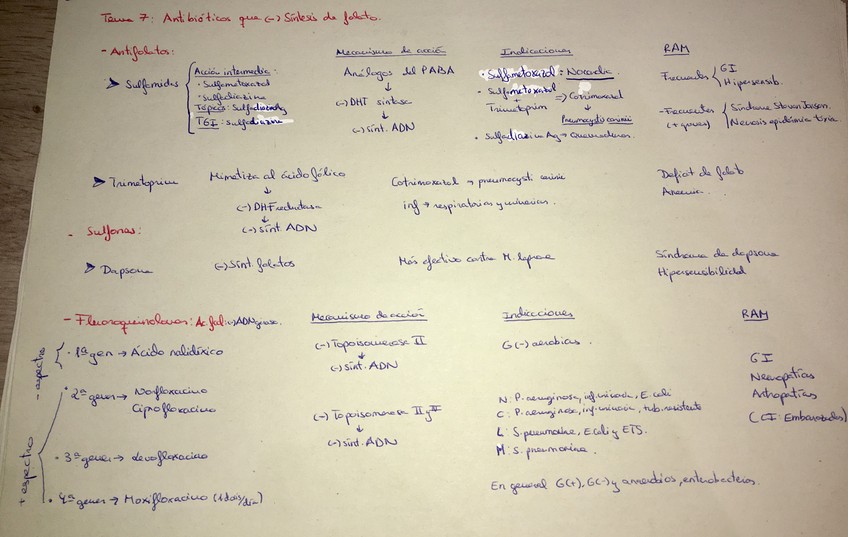 Tema 7: Antibióticos que (-) Síntesis de folato.
- Antifolatos:
Mecanismo de acción
Indicaciones
RAM
➤ Sulfamidas
Acción intermedia:
• Sulfametoxazol
• sulfadiazina
Tópicas: Sulfadiacinaag
TGI: Sulfadiazina
Análogos del PABA
↓
(-) DHT sintasa
↓
(-) sínt. ADN
• Sulfametoxazol: Nocardia.
• Sulfametoxazol
+
Trimetoprim
⇒ Cotrimoxazol
↓
Pneumocystis carinii
• Sulfadiazina Ag → Quemaduras.
Frecuentes { GI
Hipersensib.
-Frecuentes
(+ graves)
{ Síndrome Steven Jonson.
Necrosis epidérmica tóxica.
➤ Trimetoprim
Mimetiza al ácido fólico
↓
(-) DHF reductasa
↓
(-) sínt. ADN
Cotrimoxazol → pneumocysti carinii
inf → respiratorias y urinarias.
Deficit de folato
Anemia.
- Sulfonas:
➤ Dapsona
(-) Sínt. folatos
Más efectivo contra M. leprae
Síndrome de dapsona
Hipersensibilidad
- Fluoroquinolonas: (-) ADN girasa.
Mecanismo de acción
Indicaciones
RAM
- espectro
• 1ª gen → Ácido nalidíxico
(-) Topoisomerasa II
↓
(-) sínt. ADN
G(-) aerobias.
GI
Neuropatías
Artropatías
(CI: Embarazadas)
+ espectro
• 2ª gener → Norfloxacino
Ciprofloxacino
(-) Topoisomerasa II y IV
↓
(-) sínt. ADN
N: P. aeruginosa, inf. urinaria, E. coli
C: P. aeruginosa, inf. urinaria, tub. resistente
L: S. pneumoniae, E. coli y ETS.
M: S. pneumoniae.
• 3ª gener → Levofloxacino
• 4ª gener → Moxifloxacino (1 dosis/día)
En general G(+), G(-) y anaerobios, enterobacterias.